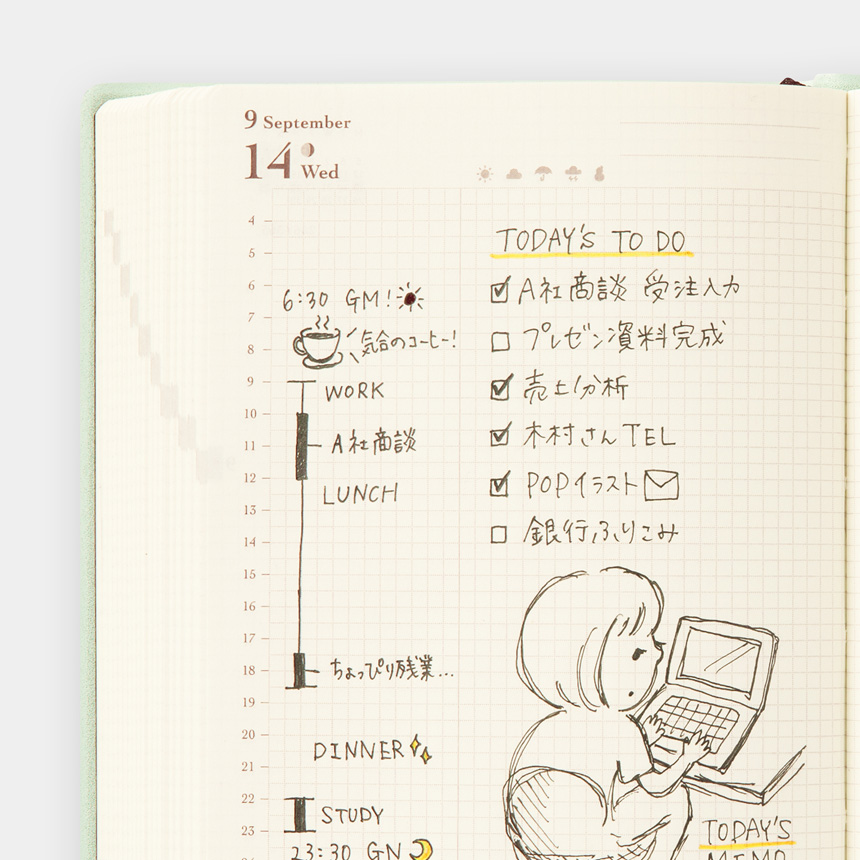 9 September
14 Wed
4
5
6
6:30 GM!
7
8
気合のコーヒー!
9
WORK
10
11
A社商談
12
LUNCH
13
14
15
16
17
18
ちょっぴり残業...
19
20
DINNER
21
22
STUDY
23
23:30 GN
TODAY'S TO DO
A社商談 受注入力
プレゼン資料完成
売上分析
木村さんTEL
POPイラスト
銀行ふりこみ
TODAY'S
MEMO